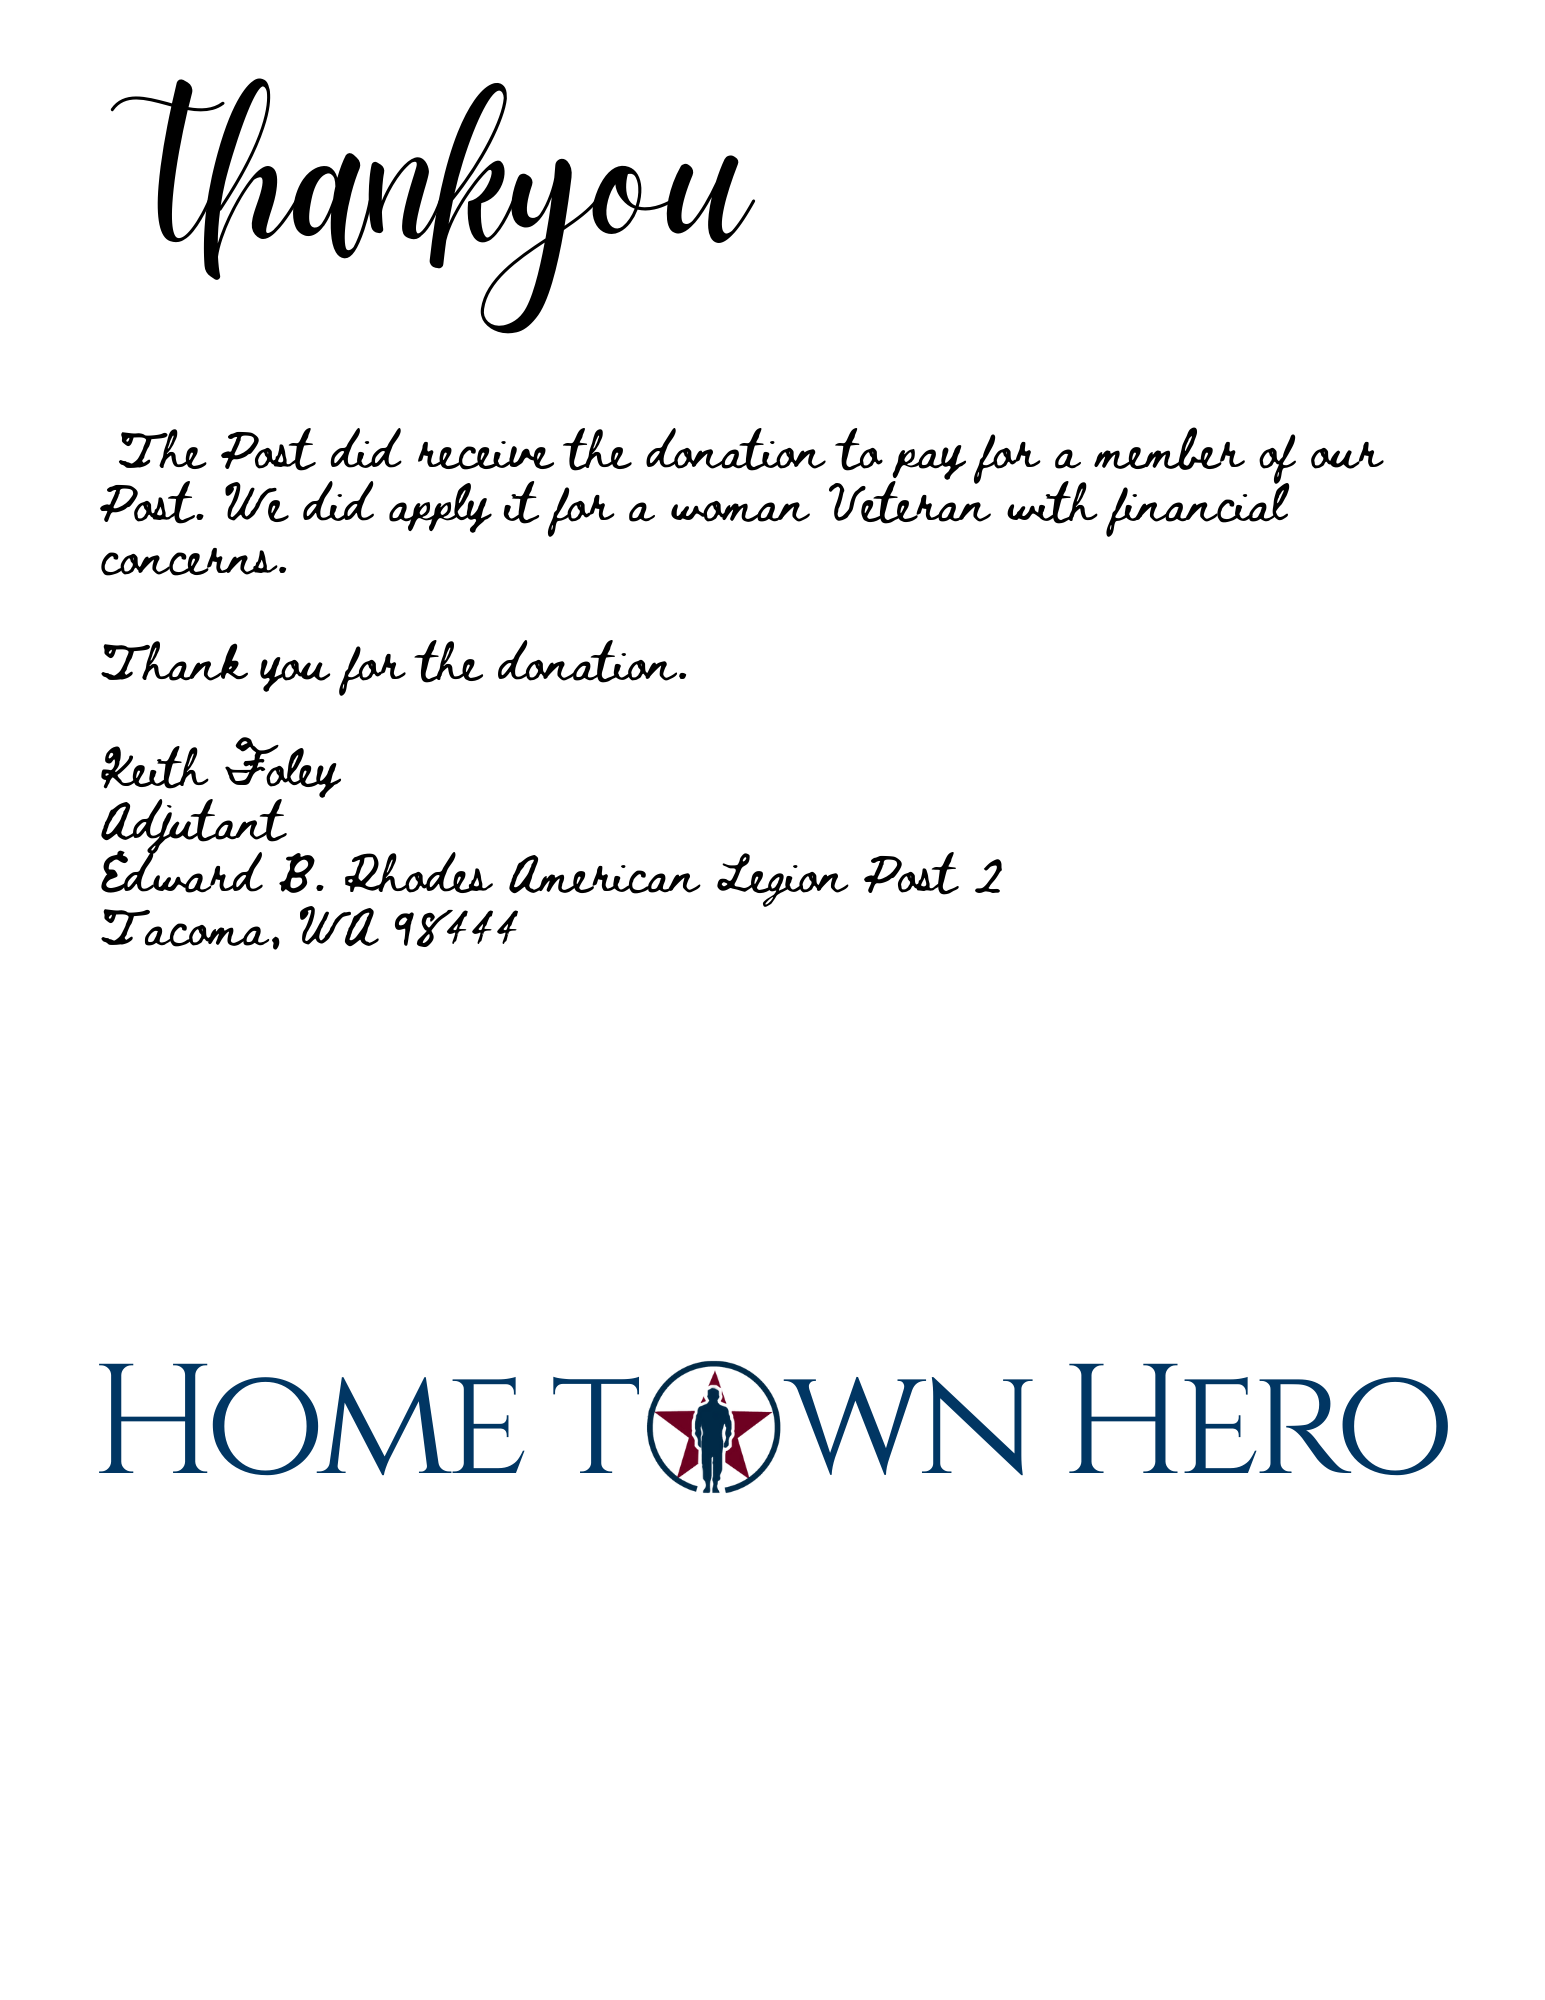 thankyou
The Post did receive the donation to pay for a member of our
Post. We did apply it for a woman Veteran with financial
concerns.
Thank you for the donation.
Keith Foley
Adjutant
Edward B. Rhodes American Legion Post 2
Tacoma, WA 98444
HOME TOWN HERO